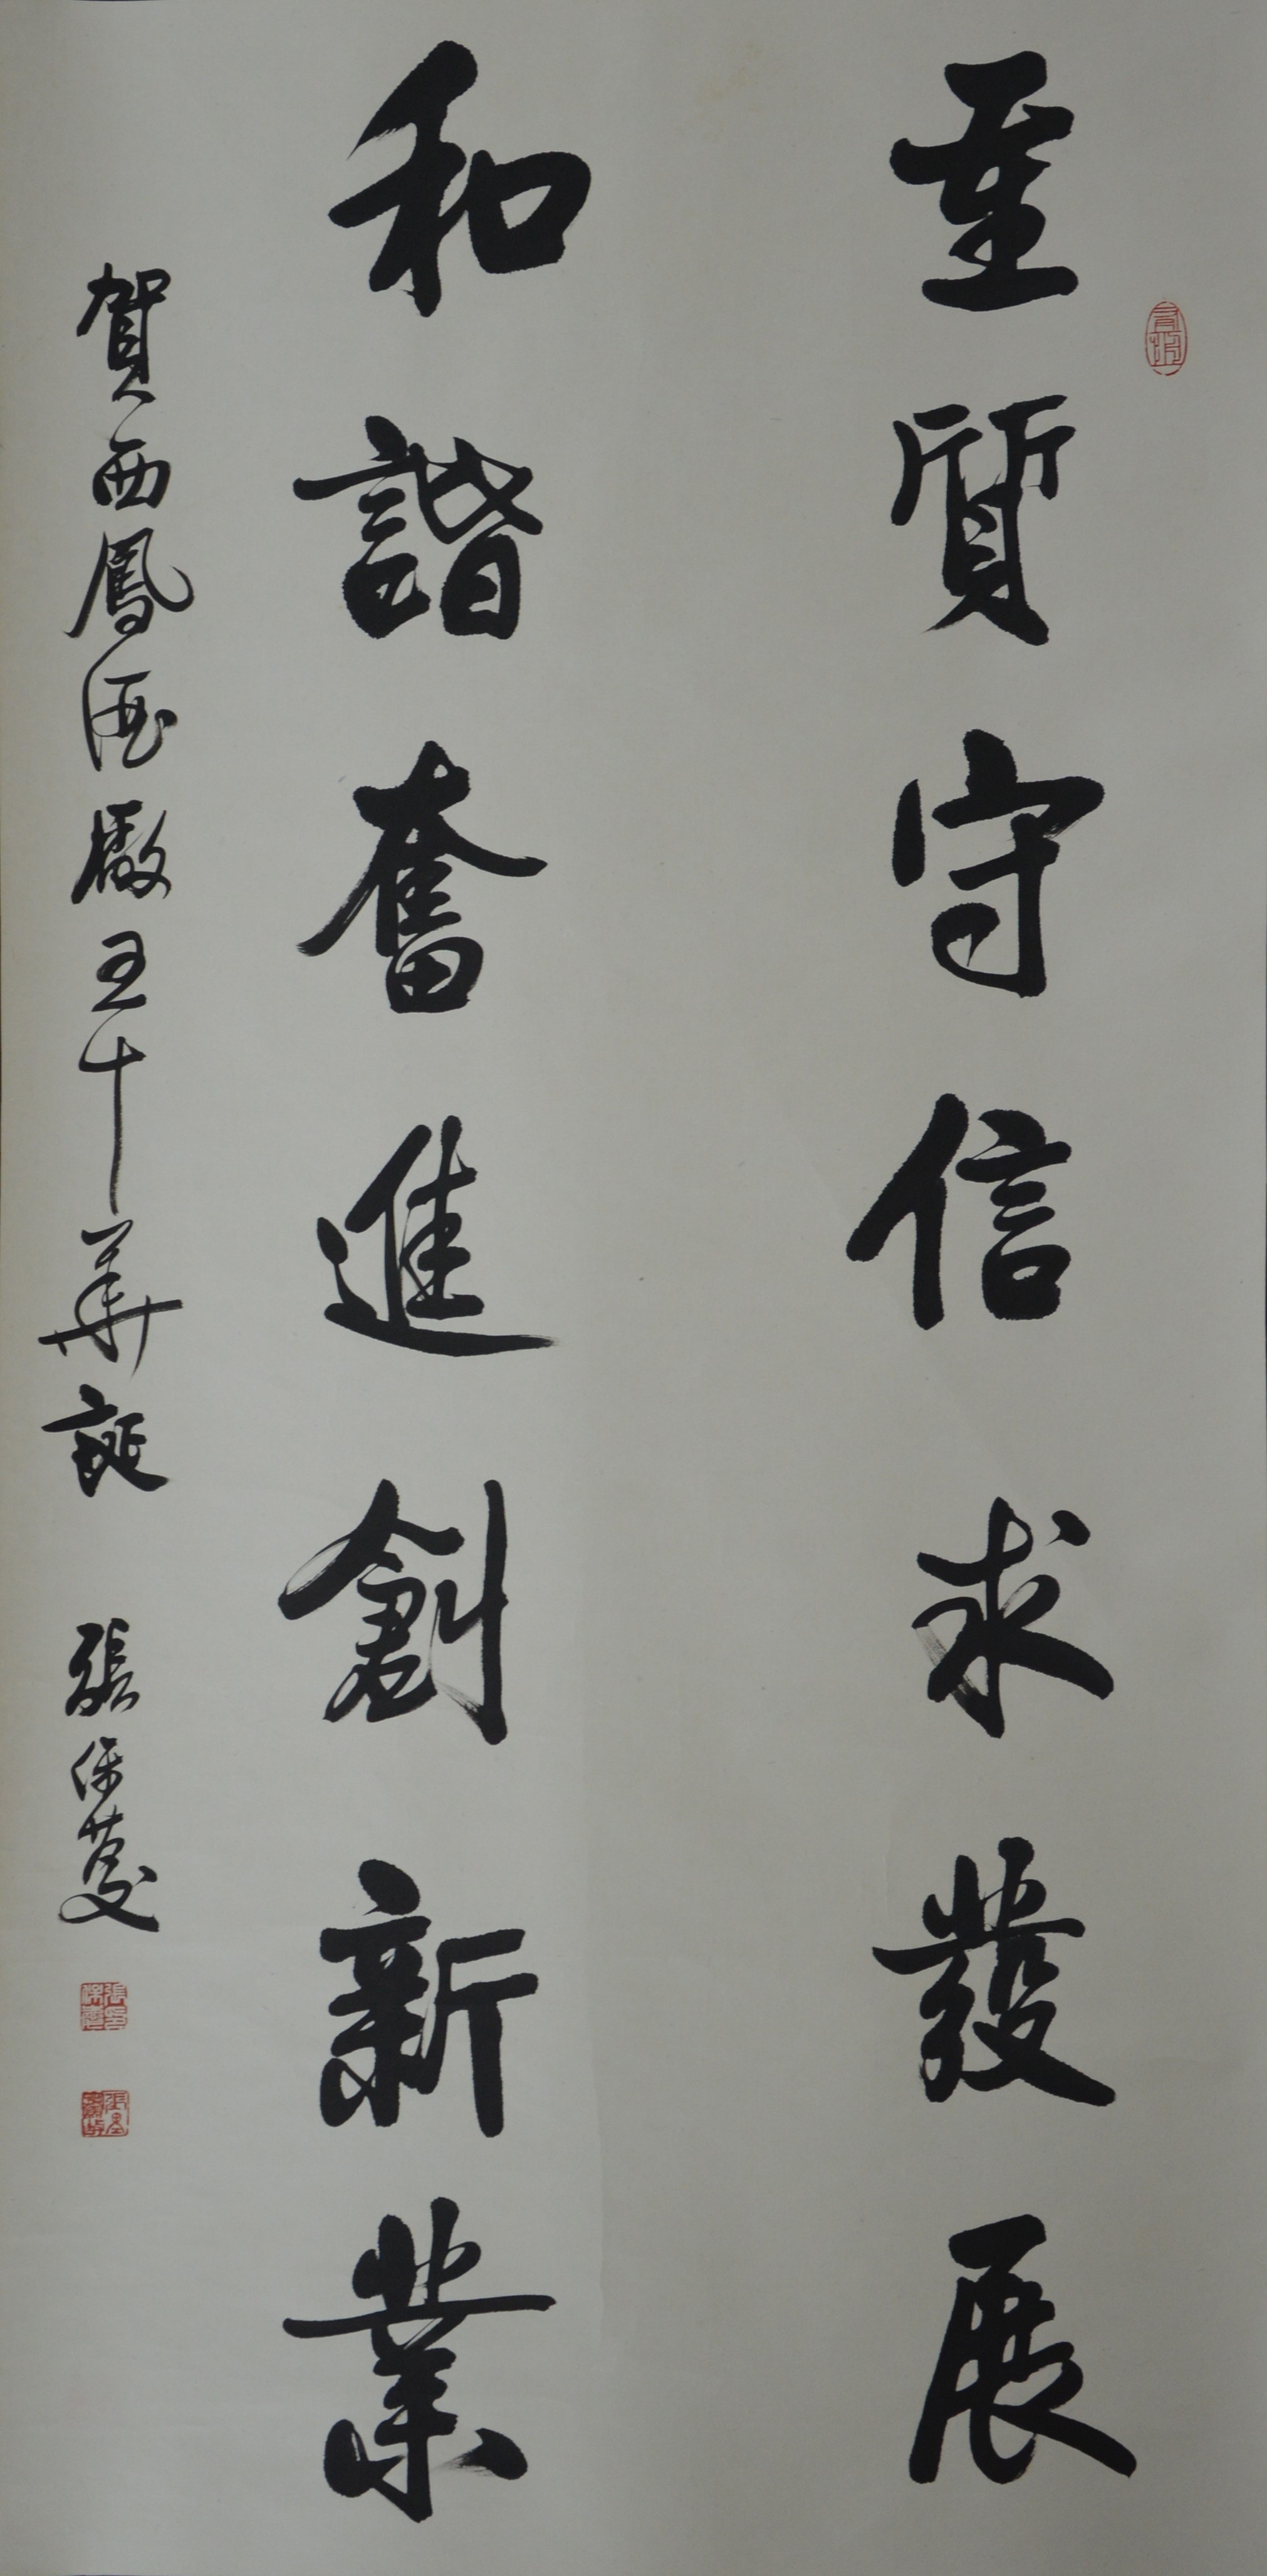 重質守信求發展
和諧奮進創新業
賀西鳳酒廠五十華誕
張保慶